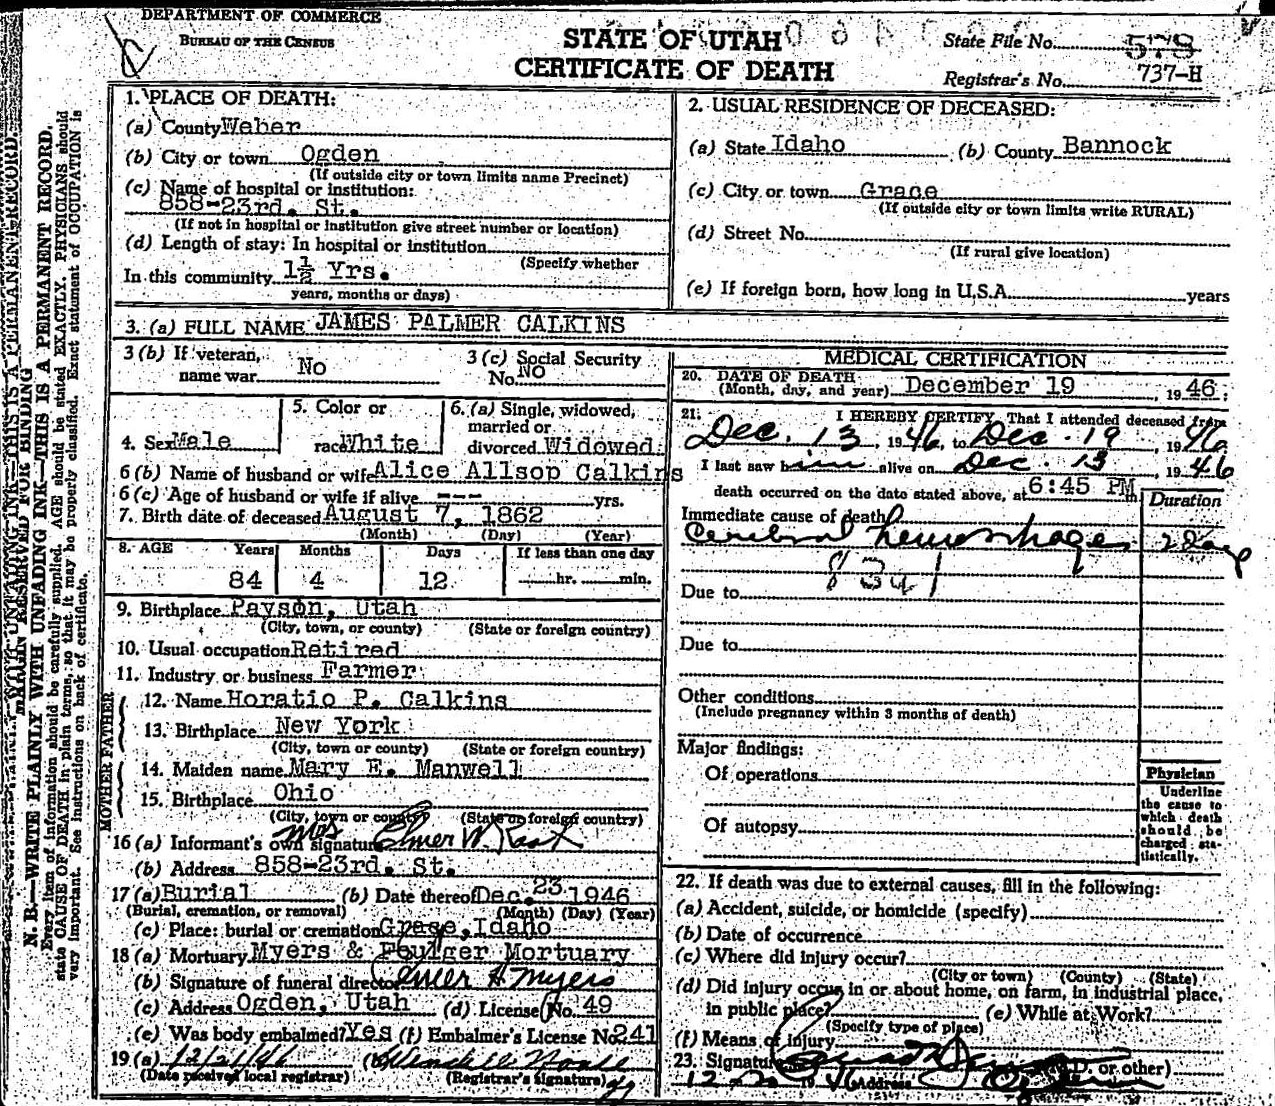 DEPARTMENT OF COMMERCE
BUREAU OF THE CENSUS
STATE OF UTAH
CERTIFICATE OF DEATH
State File No. 578
Registrar's No. 737-H
N. B.—WRITE PLAINLY WITH UNFADING INK—THIS IS A PERMANENT RECORD.
MARGIN RESERVED FOR BINDING
Every item of information should be carefully supplied. AGE should be stated EXACTLY. PHYSICIANS should
state CAUSE OF DEATH in plain terms, so that it may be properly classified. Exact statement of OCCUPATION is
very important. See instructions on back of certificate.
1. PLACE OF DEATH:
(a) County Weber
(b) City or town Ogden
(If outside city or town limits name Precinct)
(c) Name of hospital or institution:
858-23rd. St.
(If not in hospital or institution give street number or location)
(d) Length of stay: In hospital or institution
(Specify whether
In this community 1½ Yrs.
years, months or days)
2. USUAL RESIDENCE OF DECEASED:
(a) State Idaho (b) County Bannock
(c) City or town Grace
(If outside city or town limits write RURAL)
(d) Street No.
(If rural give location)
(e) If foreign born, how long in U.S.A. years
3. (a) FULL NAME JAMES PALMER CALKINS
3 (b) If veteran, name war No
3 (c) Social Security No. NO
4. Sex Male
5. Color or race White
6. (a) Single, widowed, married or divorced Widowed
6 (b) Name of husband or wife Alice Allsop Calkins
6 (c) Age of husband or wife if alive --- yrs.
7. Birth date of deceased August 7, 1862
(Month) (Day) (Year)
8. AGE Years Months Days If less than one day
84 4 12 hr. min.
9. Birthplace Payson, Utah
(City, town, or county) (State or foreign country)
10. Usual occupation Retired
11. Industry or business Farmer
FATHER
12. Name Horatio P. Calkins
13. Birthplace New York
(City, town or county) (State or foreign country)
MOTHER
14. Maiden name Mary E. Manwell
15. Birthplace Ohio
(City, town or county) (State or foreign country)
16 (a) Informant's own signature Mrs Elmer W. Kast
(b) Address 858-23rd. St.
17 (a) Burial (b) Date thereof Dec. 23 1946
(Burial, cremation, or removal) (Month) (Day) (Year)
(c) Place: burial or cremation Grace, Idaho
18 (a) Mortuary Myers & Foulger Mortuary
(b) Signature of funeral director Elmer H Myers
(c) Address Ogden, Utah (d) License No. 49
(e) Was body embalmed? Yes (f) Embalmer's License No 241
19 (a) 12/21/46 (b)
(Date received local registrar) (Registrar's signature)
MEDICAL CERTIFICATION
20. DATE OF DEATH
(Month, day, and year) December 19, 1946;
21. I HEREBY CERTIFY, That I attended deceased from
Dec. 13, 1946, to Dec. 19 1946
I last saw him alive on Dec. 13 1946
death occurred on the date stated above, at 6:45 PM
Duration
Immediate cause of death
Cerebral hemorrhage 2 Days
Due to
Due to
Other conditions
(Include pregnancy within 3 months of death)
Major findings:
Of operations
Of autopsy
Physician
Underline
the cause to
which death
should be
charged sta-
tistically.
22. If death was due to external causes, fill in the following:
(a) Accident, suicide, or homicide (specify)
(b) Date of occurrence
(c) Where did injury occur?
(City or town) (County) (State)
(d) Did injury occur in or about home, on farm, in industrial place,
in public place? (e) While at Work?
(Specify type of place)
(f) Means of injury
23. Signature D. or other)
12-20 1946 Address Ogden